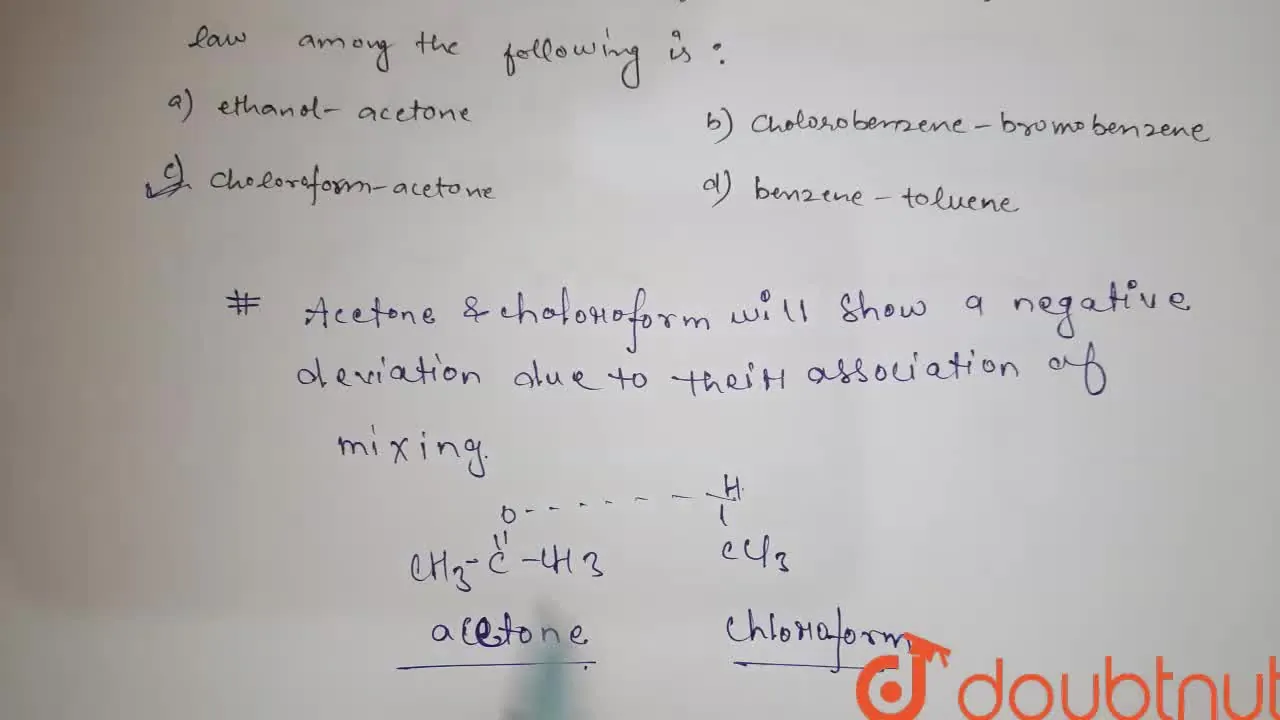 law among the following is :
a) ethanol- acetone
b) Cholorobenzene-bromobenzene
c) Choloroform-acetone
d) benzene - toluene
# Acetone & choloroform will show a negative
deviation due to their association of
mixing.
O ------ H
CH3-C-CH3 CCl3
acetone Chloroform
doubtnut